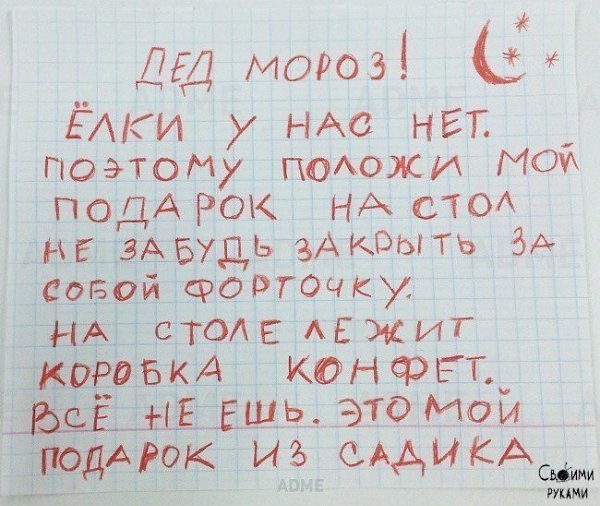 ДЕД МОРОЗ!
ЁЛКИ У НАС НЕТ.
ПОЭТОМУ ПОЛОЖИ МОЙ
ПОДАРОК НА СТОЛ
НЕ ЗАБУДЬ ЗАКРЫТЬ ЗА
СОБОЙ ФОРТОЧКУ.
НА СТОЛЕ ЛЕЖИТ
КОРОБКА КОНФЕТ.
ВСЁ НЕ ЕШЬ. ЭТО МОЙ
ПОДАРОК ИЗ САДИКА
Своими
РУКАМИ
ADME